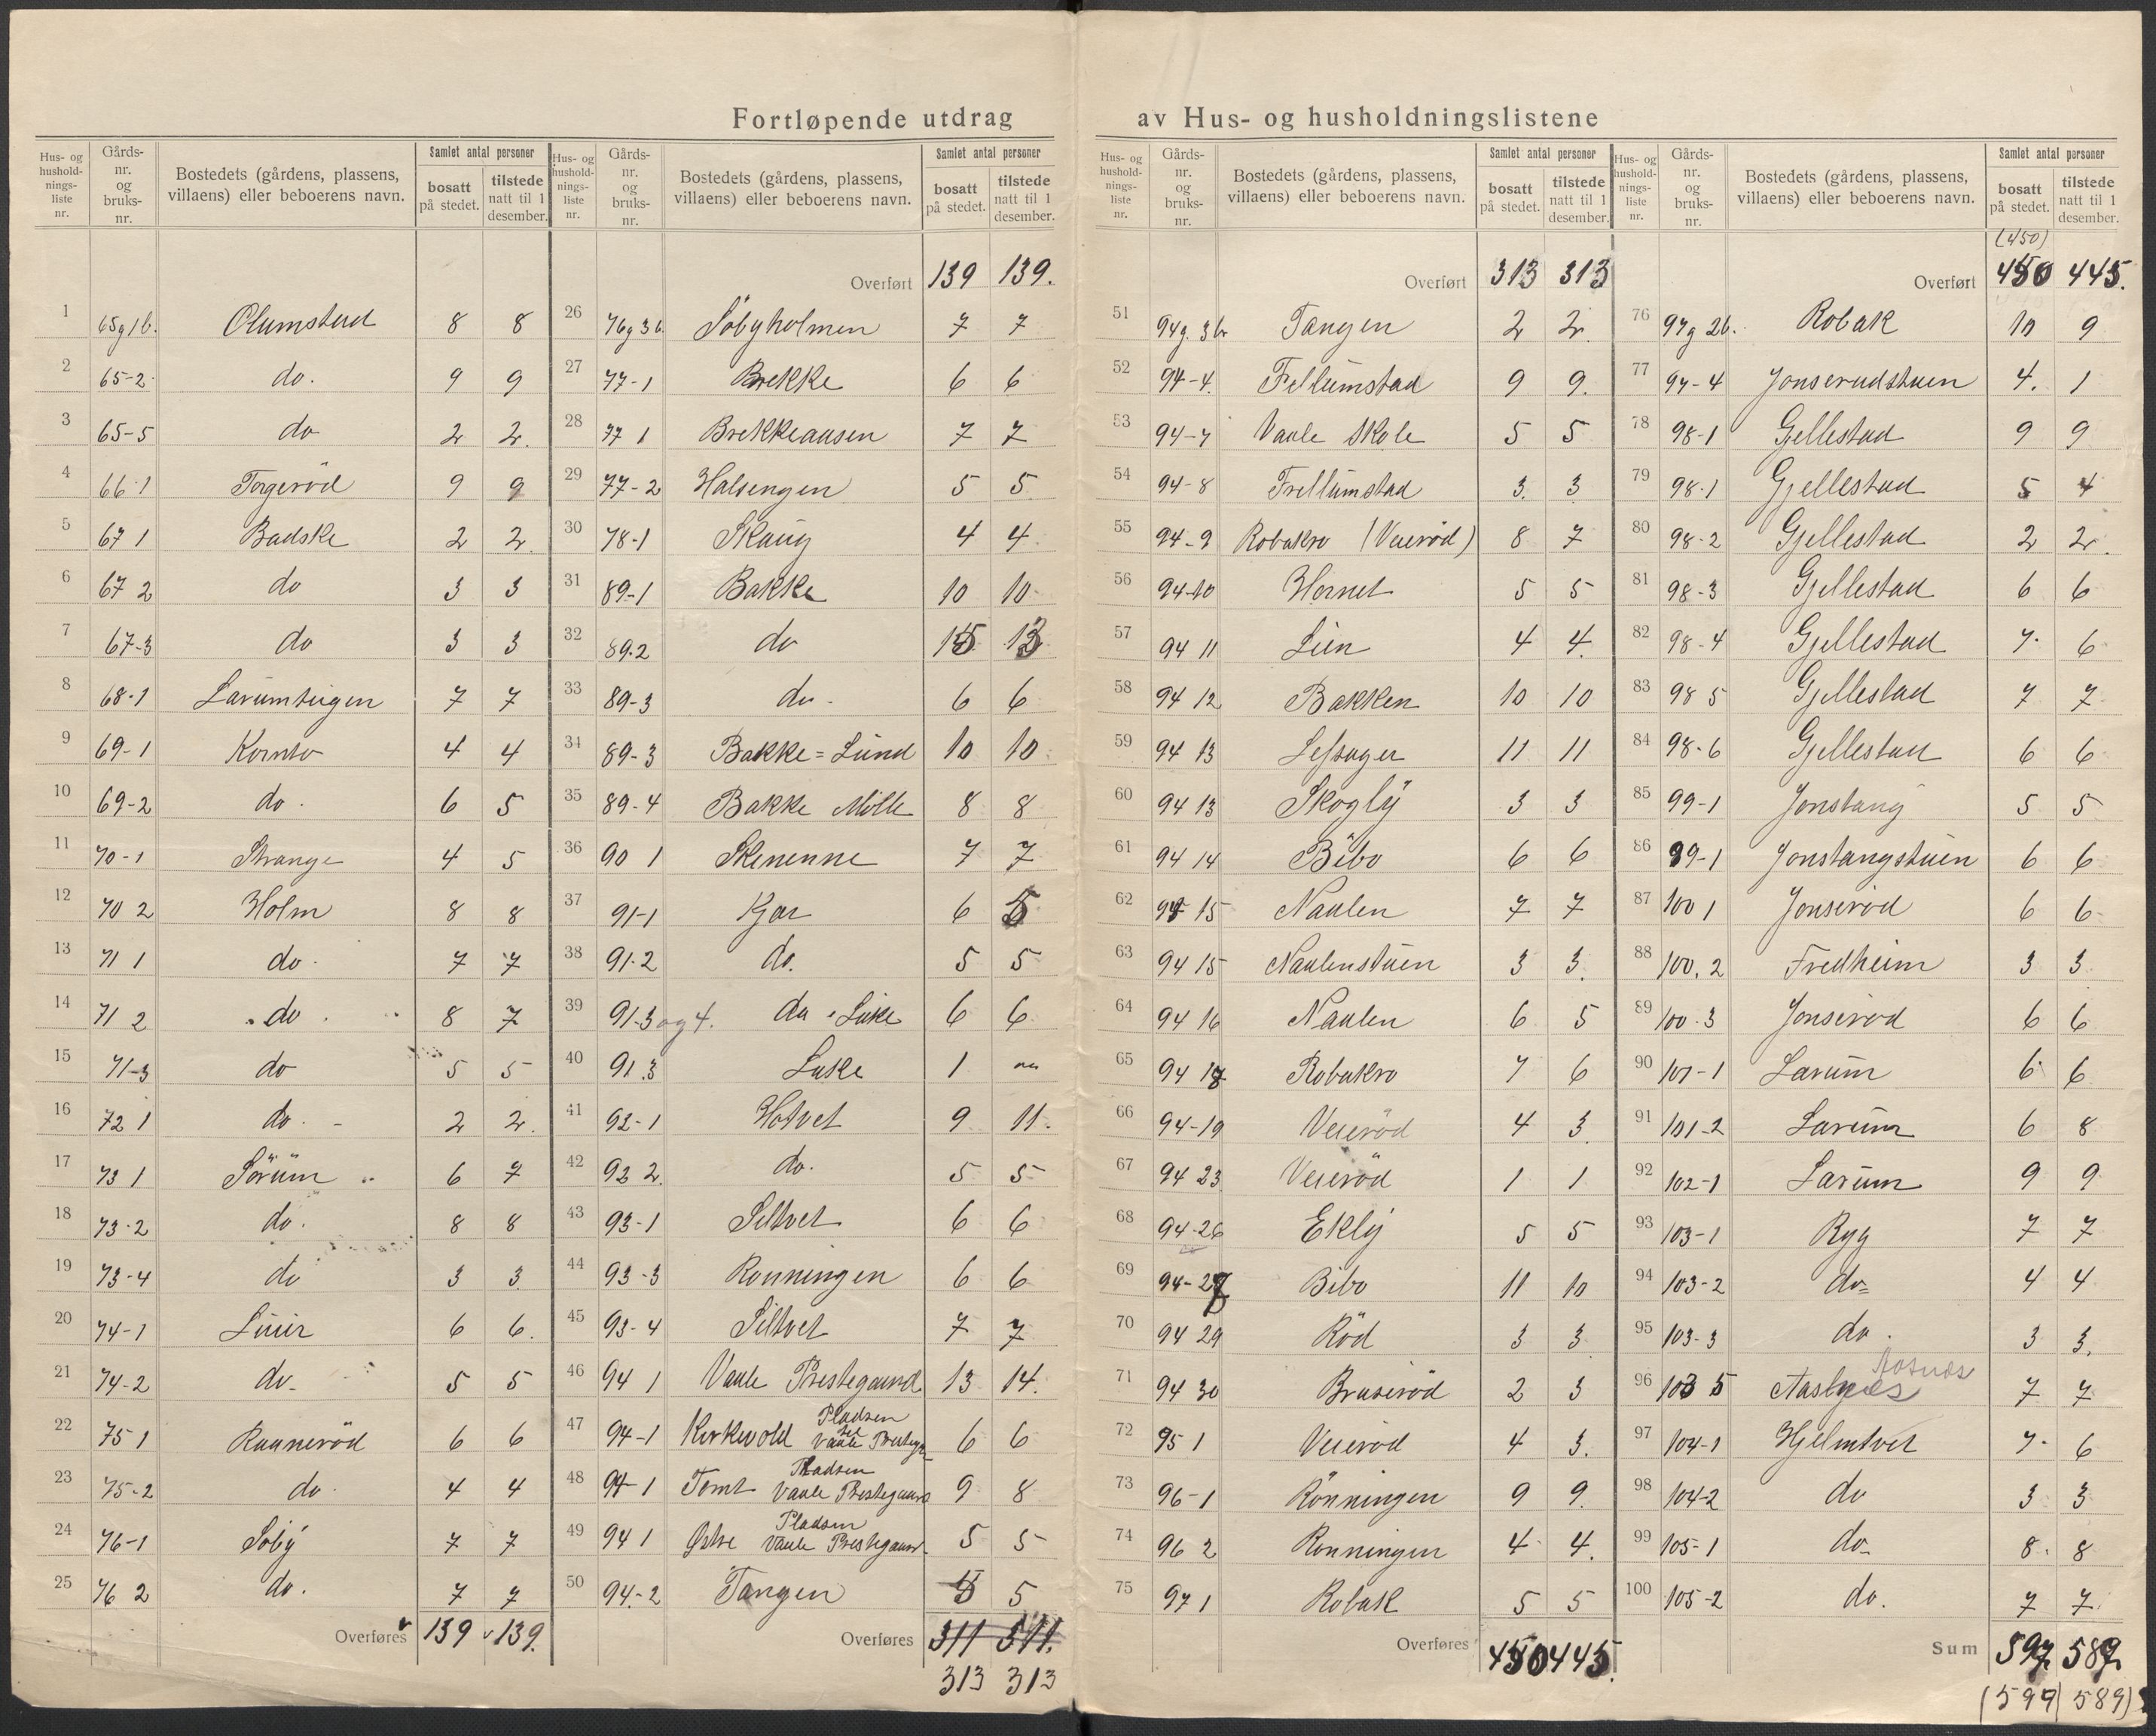 Fortløpende utdrag av Hus- og husholdningslistene
Hus- og husholdnings-liste nr. | Gårds-nr. og bruks-nr. | Bostedets (gårdens, plassens, villaens) eller beboerens navn. | Samlet antal personer | bosatt på stedet. | tilstede natt til 1 desember.
1 65g 1b. Olumstad 8 8
2 65-2 do. 9 9
3 65-5 do 2 2.
4 66 1 Torgeröd 9 9
5 67 1 Badske 2 2.
6 67 2 do 3 3
7 67-3 do 3 3
8 68-1 Larumteigen 7 7
9 69-1 Kornto 4 4
10 69-2 do. 6 5
11 70-1 Strange 4 5
12 70 2 Holm 8 8
13 71 1 do. 7 7
14 71 2 do. 8 7
15 71-3 do 5 5
16 72 1 do. 2 2.
17 73 1 Sörum 6 7
18 73-2 do. 8 8
19 73-4 do 3 3.
20 74-1 Linier 6 6.
21 74-2 do. 5 5
22 75 1 Raaneröd 6 6
23 75-2 do. 4 4
24 76-1 Soby 7 7
25 76 2 do. 7 7
Overføres 139 139.
Hus- og husholdnings-liste nr. | Gårds-nr. og bruks-nr. | Bostedets (gårdens, plassens, villaens) eller beboerens navn. | Samlet antal personer | bosatt på stedet. | tilstede natt til 1 desember.
Overført 139 139.
26 76g 3b. Söbyholmen 7 7
27 77-1 Brekke 6 6
28 77 1 Brekkeaasen 7 7
29 77-2 Halsengen 5 5
30 78-1 Skaug 4 4
31 89-1 Bakke 10 10
32 89.2 do 15 13
33 89-3 do 6 6
34 89-3 Bakke = Lund 10 10
35 89-4 Bakke Mölle 8 8
36 90 1 Sklenenne 7 7
37 91-1 Kjær 6 5
38 91-2 do. 5 5
39 91-3 og 4. do. Luke 6 6
40 91.3 Luke 1 "
41 92-1 Hotvet 9 11.
42 92 2. do. 5 5
43 93-1 Siltvet 6 6
44 93-3 Ronningen 6 6
45 93-4 Siltvet 7 7
46 94 1 Vaale Prestegaard 13 14.
47 94-1 Kirkevold Pladsen Vaale Prestegr 6 6
48 94-1 Tomt Pladsen Vaale Prestegaard 9 8
49 94 1 Østre Pladsen Vaale Prestegaard 5 5
50 94-2 Tangen 5 5
Overføres 311 311.
313 313
Hus- og husholdnings-liste nr. | Gårds-nr. og bruks-nr. | Bostedets (gårdens, plassens, villaens) eller beboerens navn. | Samlet antal personer | bosatt på stedet. | tilstede natt til 1 desember.
Overført 313 313
51 94g. 3b Tangen 2 2.
52 94-4. Fellumstad 9 9.
53 94-7 Vaale Skole 5 5
54 94-8 Frellumstad 3. 3
55 94-9 Robakro (Veieröd) 8 7
56 94-10 Hornet 5 5
57 94 11 Lien 4 4.
58 94 12 Bakken 10 10
59 94 13 Lefsager 11 11
60 94 13 Skogly 3 3
61 94 14 Bibo 6 6
62 94 15 Naulen 7 7
63 94 15 Naulenstuen 3 3.
64 94 16 Naulen 6 5
65 94 18 Robakro 7 6
66 94-19 Veieröd 4 3.
67 94 23 Veieröd 1 1
68 94-26 Ekly 5 5
69 94-27 Bibo 11 10
70 94 29 Röd 3 3
71 94 30 Bruseröd 2 3
72 95 1 Veieröd 4 3.
73 96-1 Rönningen 9 9.
74 96 2 Ronningen 4 4.
75 97 1 Robak 5 5
Overføres 450 445.
Hus- og husholdnings-liste nr. | Gårds-nr. og bruks-nr. | Bostedets (gårdens, plassens, villaens) eller beboerens navn. | Samlet antal personer | bosatt på stedet. | tilstede natt til 1 desember.
(450)
Overført 450 445.
76 97g 2b. Robak 10 9
77 97-4 Jonserudstuen 4. 1
78 98-1 Gjellestad 9 9
79 98-1 Gjellestad 5 4
80 98-2 Gjellestad 2 2.
81 98-3 Gjellestad 6 6
82 98-4 Gjellestad 7. 6
83 98 5 Gjellestad 7 7
84 98-6 Gjellestad 6 6
85 99-1 Jonstang 5 5
86 99-1 Jonstangstuen 6 6
87 100 1 Jonseröd 6 6
88 100. 2 Fredheim 3 3
89 100-3 Jonseröd 6 6
90 101-1 Larum 6 6
91 101-2 Larum 6 8
92 102-1 Larum 9 9
93 103-1 Ryg 7 7
94 103-2 do 4 4
95 103-3 do. 3 3.
96 103 5 Aasnæs 7 7
97 104-1 Hjelmtvet 7. 6
98 104-2 do 3 3
99 105-1 do 8. 8
100 105-2 do. 7 7.
Sum 597 587
(599) 589)